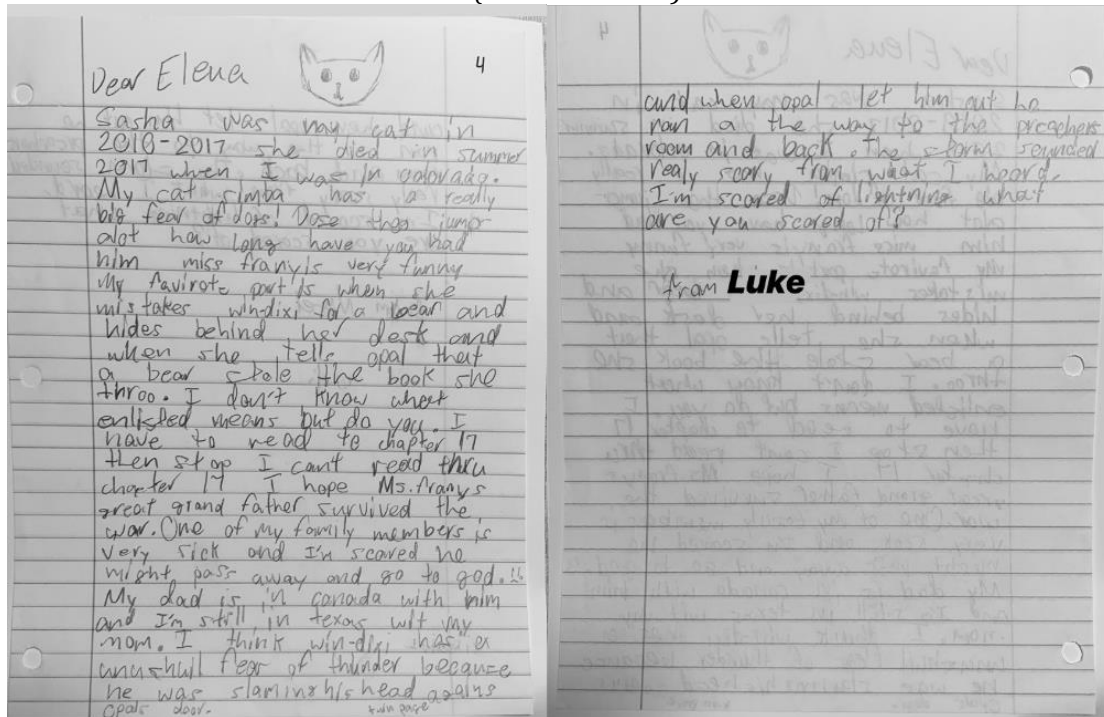 4
Dear Elena
Sasha was my cat in
2016-2017 she died in summer
2017 when I was in colorado.
My cat simba has a really
big fear of dogs! Dose theo jump
alot how long have you had
him miss franyis very funny
My favirote part is when she
mistakes win-dixi for a bear and
hides behind her desk and
when she tells opal that
a bear stole the book she
throo. I don't know what
enlisted means but do you. I
have to read to chapter 17
then stop I cant read thru
chapter 17 I hope Ms.franys
great grand father survived the
war. One of my family members is
very sick and I'm scared he
might pass away and go to god.
My dad is in canada with him
and I'm still in texas wit my
mom. I think win-dixi has a
unushuil fear of thunder because
he was slaming his head agains
opals door. turn page
and when opal let him out he
ran a the way to the preachers
room and back. the storm sounded
realy scary from what I heard.
I'm scared of lightning what
are you scared of?
from Luke